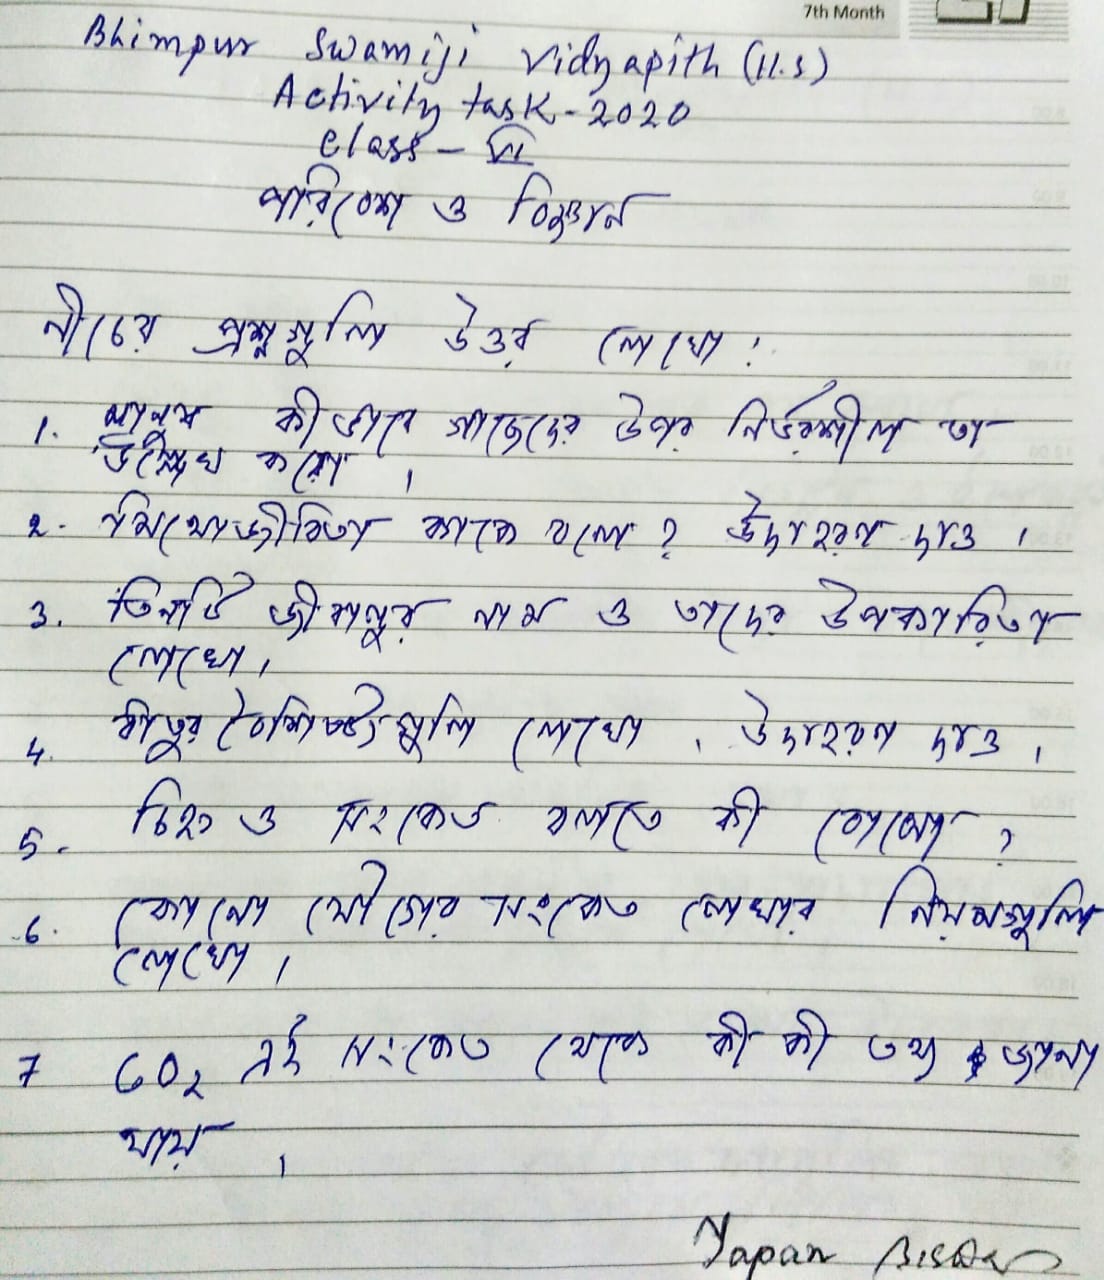 7th Month
Bhimpur Swamiji Vidyapith (H.S)
Activity task - 2020
Class - VI
পরিবেশ ও বিজ্ঞান
নীচের প্রশ্নগুলি উত্তর লেখো :
1. মানুষ কীভাবে গাছেদের উপর নির্ভরশীল তা
উল্লেখ করো ।
2. মিথোজীবিতা কাকে বলে ? উদাহরন দাও ।
3. তিনটি জীবানুর নাম ও তাদের উপকারিতা
লেখো ।
4. ধাতুর বৈশিষ্ট্যগুলি লেখো । উদাহরন দাও ।
5. চিহ্ন ও সংকেত বলতে কী বোঝো ?
6. কোনো যৌগের সংকেত লেখার নিয়মগুলি
লেখো ।
7 CO₂ এই সংকেত থেকে কী কী তথ্য জানা
যায় ।
Tapan Biswas